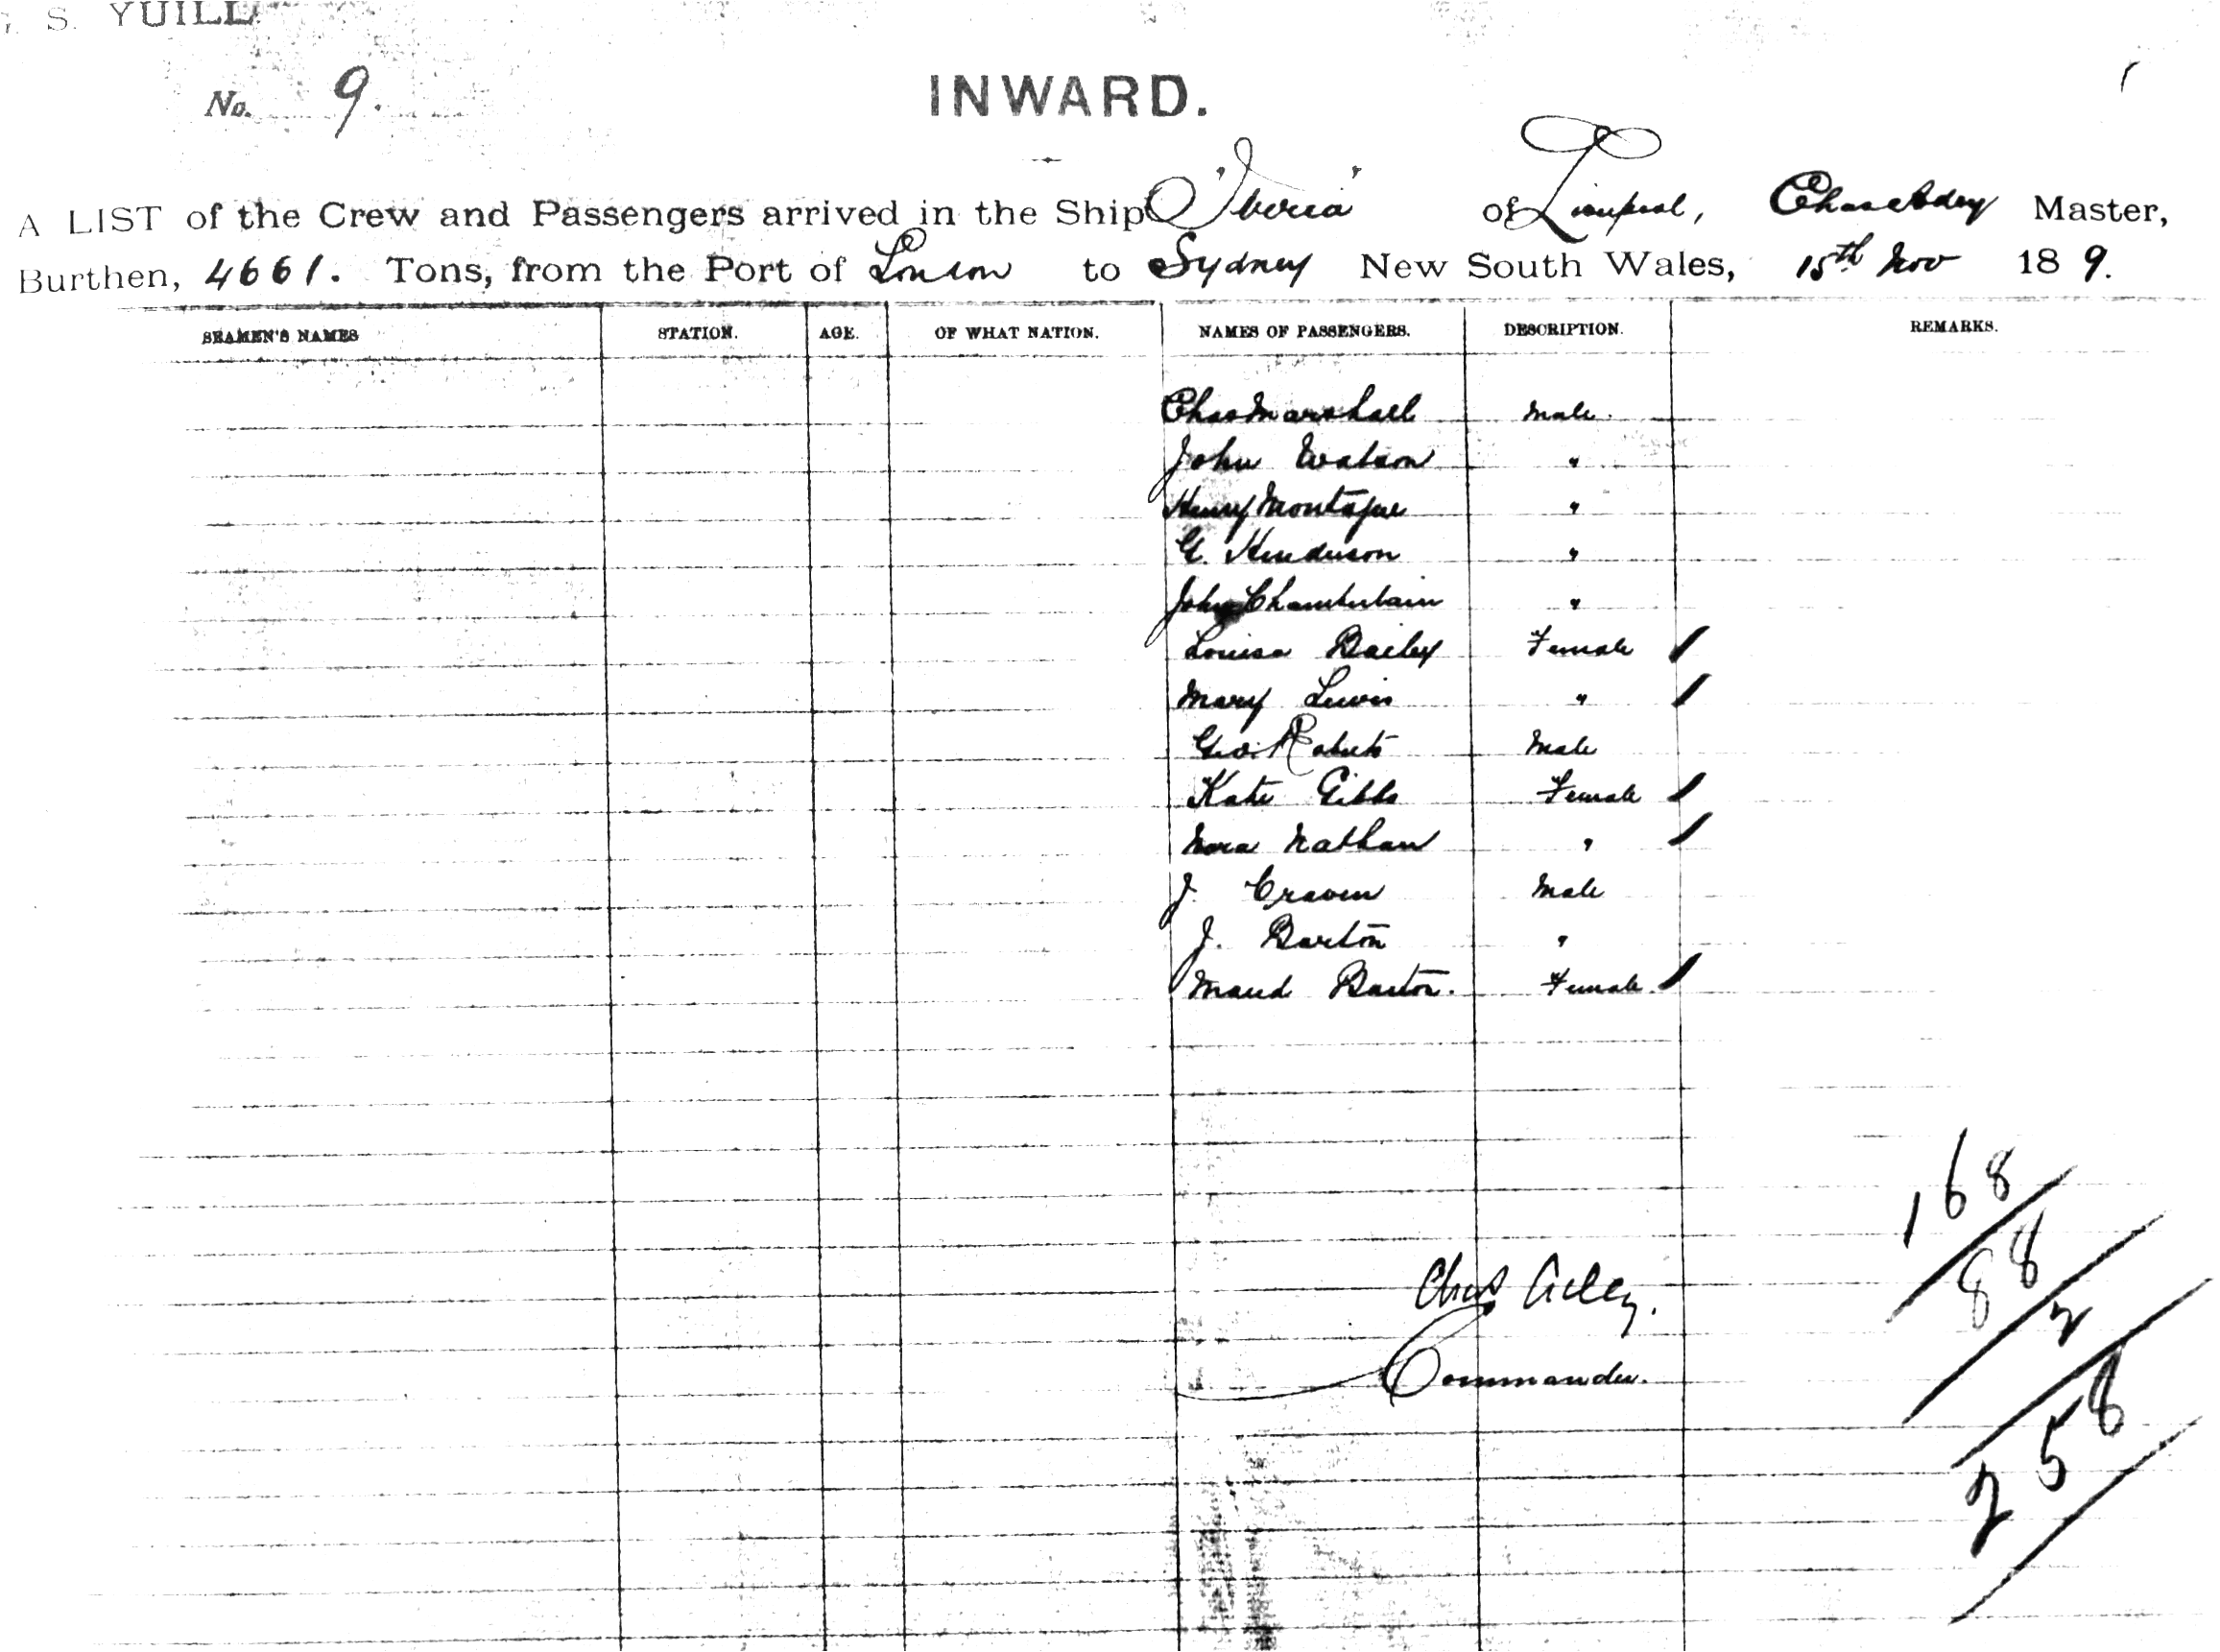 S. YUILL
No. 9.
INWARD.
A LIST of the Crew and Passengers arrived in the Ship "Iberia" of Liverpool, Chas Adey Master,
Burthen, 4661. Tons, from the Port of London to Sydney New South Wales, 15th Nov 189.
SEAMEN'S NAMES STATION. AGE. OF WHAT NATION. NAMES OF PASSENGERS. DESCRIPTION. REMARKS.
Chas Marshall Male.
John Watson "
Henry Montague "
G. Henderson "
John Chamberlain "
Louisa Bailey Female
Mary Lewis "
Geo. Roberts Male
Kate Gibbs Female
Nora Nathan "
J. Craven Male
J. Barton "
Maud Barton. Female.
168
88
2
258
Chas Adey.
Commander.